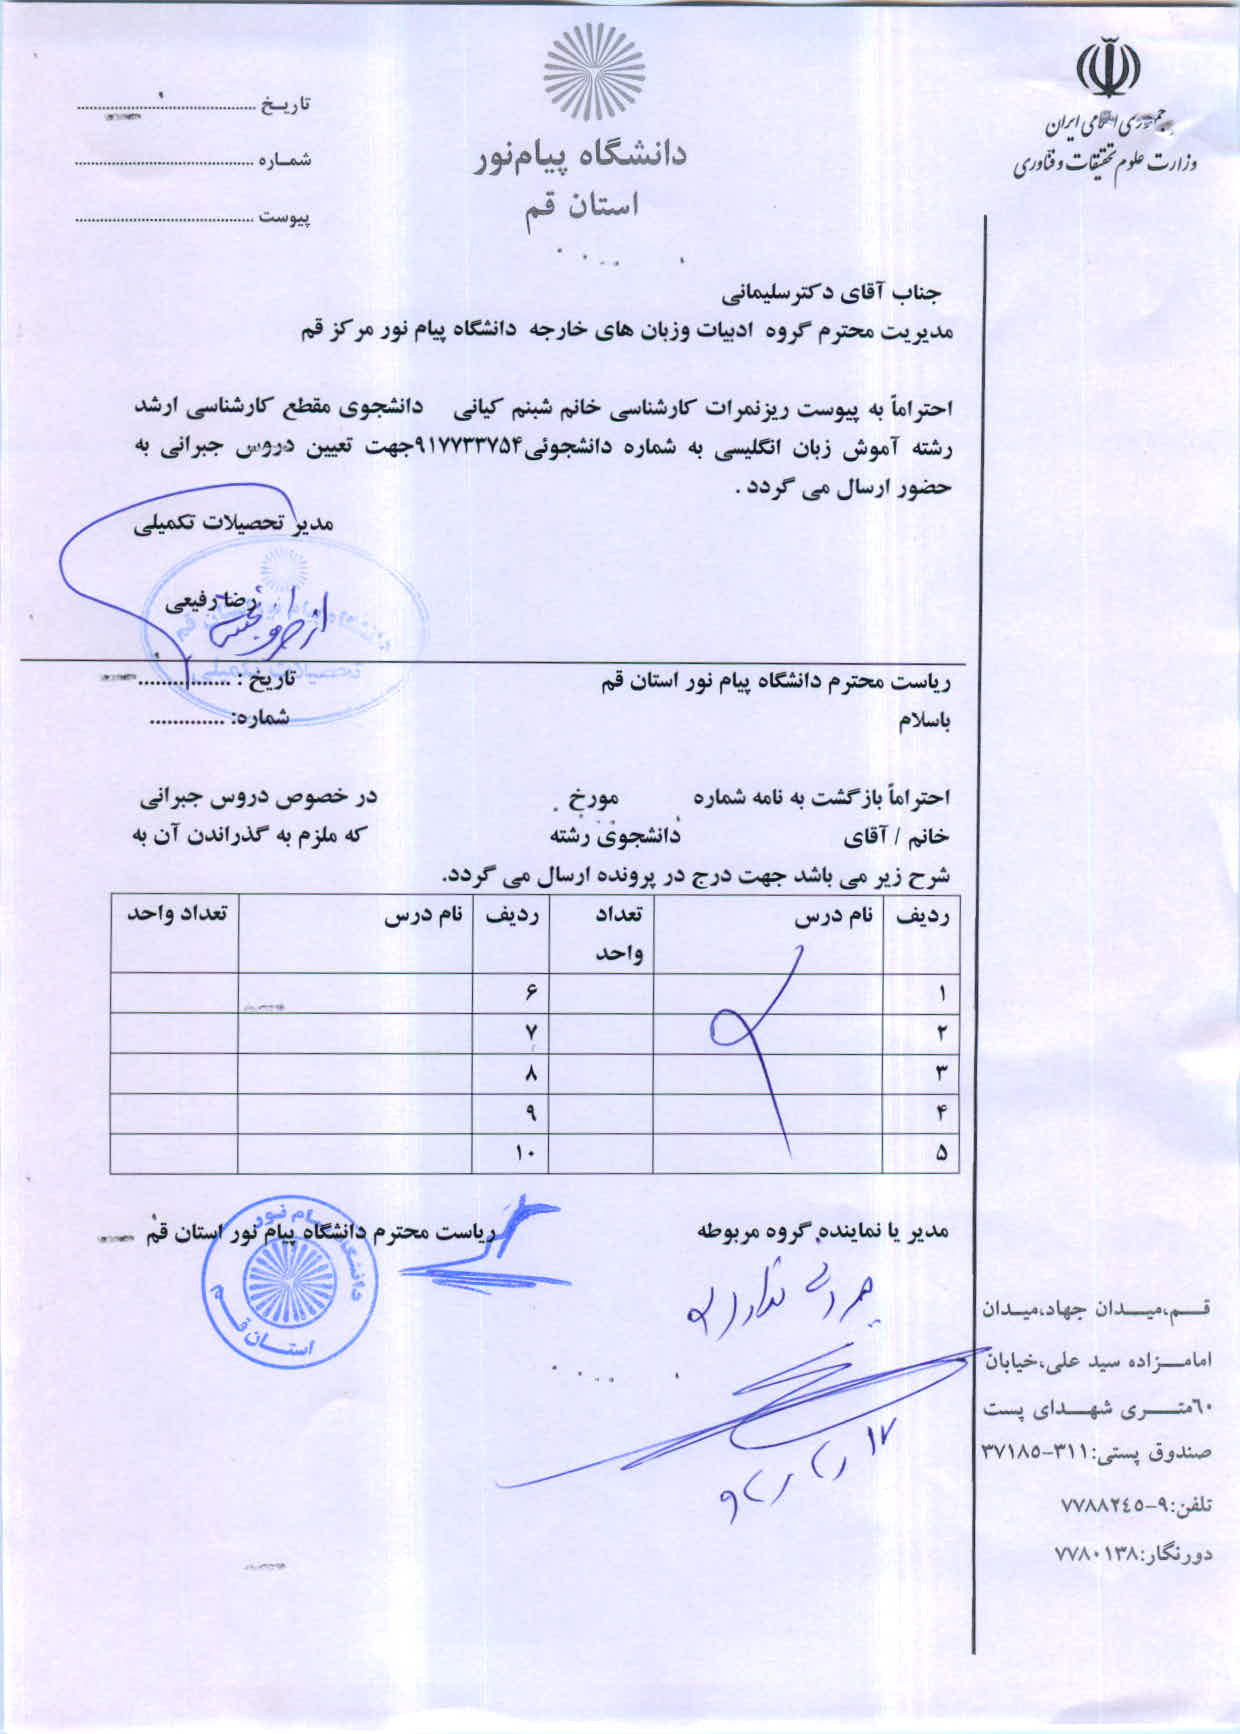 جمهوری اسلامی ایران
وزارت علوم تحقیقات و فناوری
دانشگاه پیام‌نور
استان قم
تاریـخ ..........................................
شمـاره ..........................................
پیوست ..........................................
جناب آقای دکترسلیمانی
مدیریت محترم گروه ادبیات وزبان های خارجه دانشگاه پیام نور مرکز قم
احتراماً به پیوست ریزنمرات کارشناسی خانم شبنم کیانی دانشجوی مقطع کارشناسی ارشد
رشته آموش زبان انگلیسی به شماره دانشجوئی۹۱۷۷۳۳۷۵۴جهت تعیین دروس جبرانی به
حضور ارسال می گردد .
مدیر تحصیلات تکمیلی
رضا رفیعی
ریاست محترم دانشگاه پیام نور استان قم
تاریخ : ................
باسلام
شماره: .............
احتراماً بازگشت به نامه شماره مورخ در خصوص دروس جبرانی
خانم / آقای دانشجوی رشته که ملزم به گذراندن آن به
شرح زیر می باشد جهت درج در پرونده ارسال می گردد.
ردیف نام درس تعداد واحد ردیف نام درس تعداد واحد
۱ ۶
۲ ۷
۳ ۸
۴ ۹
۵ ۱۰
مدیر یا نماینده گروه مربوطه
ریاست محترم دانشگاه پیام نور استان قم
دانشگاه پیام نور
استان قم
قـــم،میـــدان جهاد،میـدان
امامـــزاده سید علی،خیابان
٦۰متـــری شهـــدای پست
صندوق پستی:۳۱۱-۳۷۱۸٥
تلفن:۹-۷۷۸۸۲٤٥
دورنگار:۷۷۸۰۱۳۸